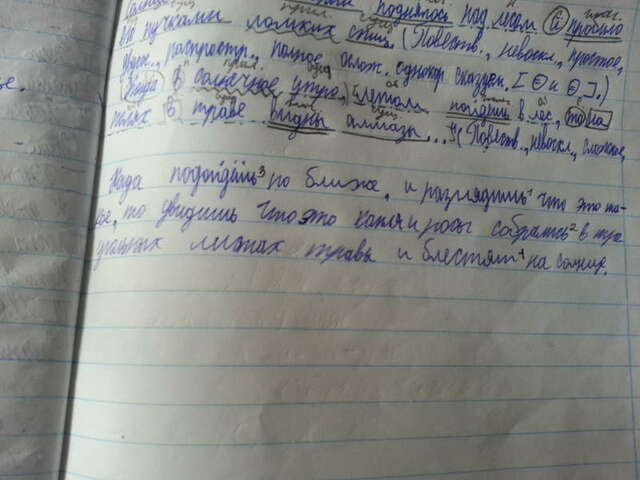 поднялось над лесом а
по пучками ломких спиц. (Повеств., невоскл., простое,
распростр., полное, ослож. однокор. сказуем. I ⊖ и ⊖ ].)
Когда в солнечное утро, летом пойдёшь в лес, то на
полях в траве видны алмазы... (Повеств., невоскл., сложное,
Када подойдёшь³ по ближе, и разглядишь¹ что это та-
ое, то увидишь что это капли росы собрать² в тре
угальных листах травы и блестят¹ на солнце.